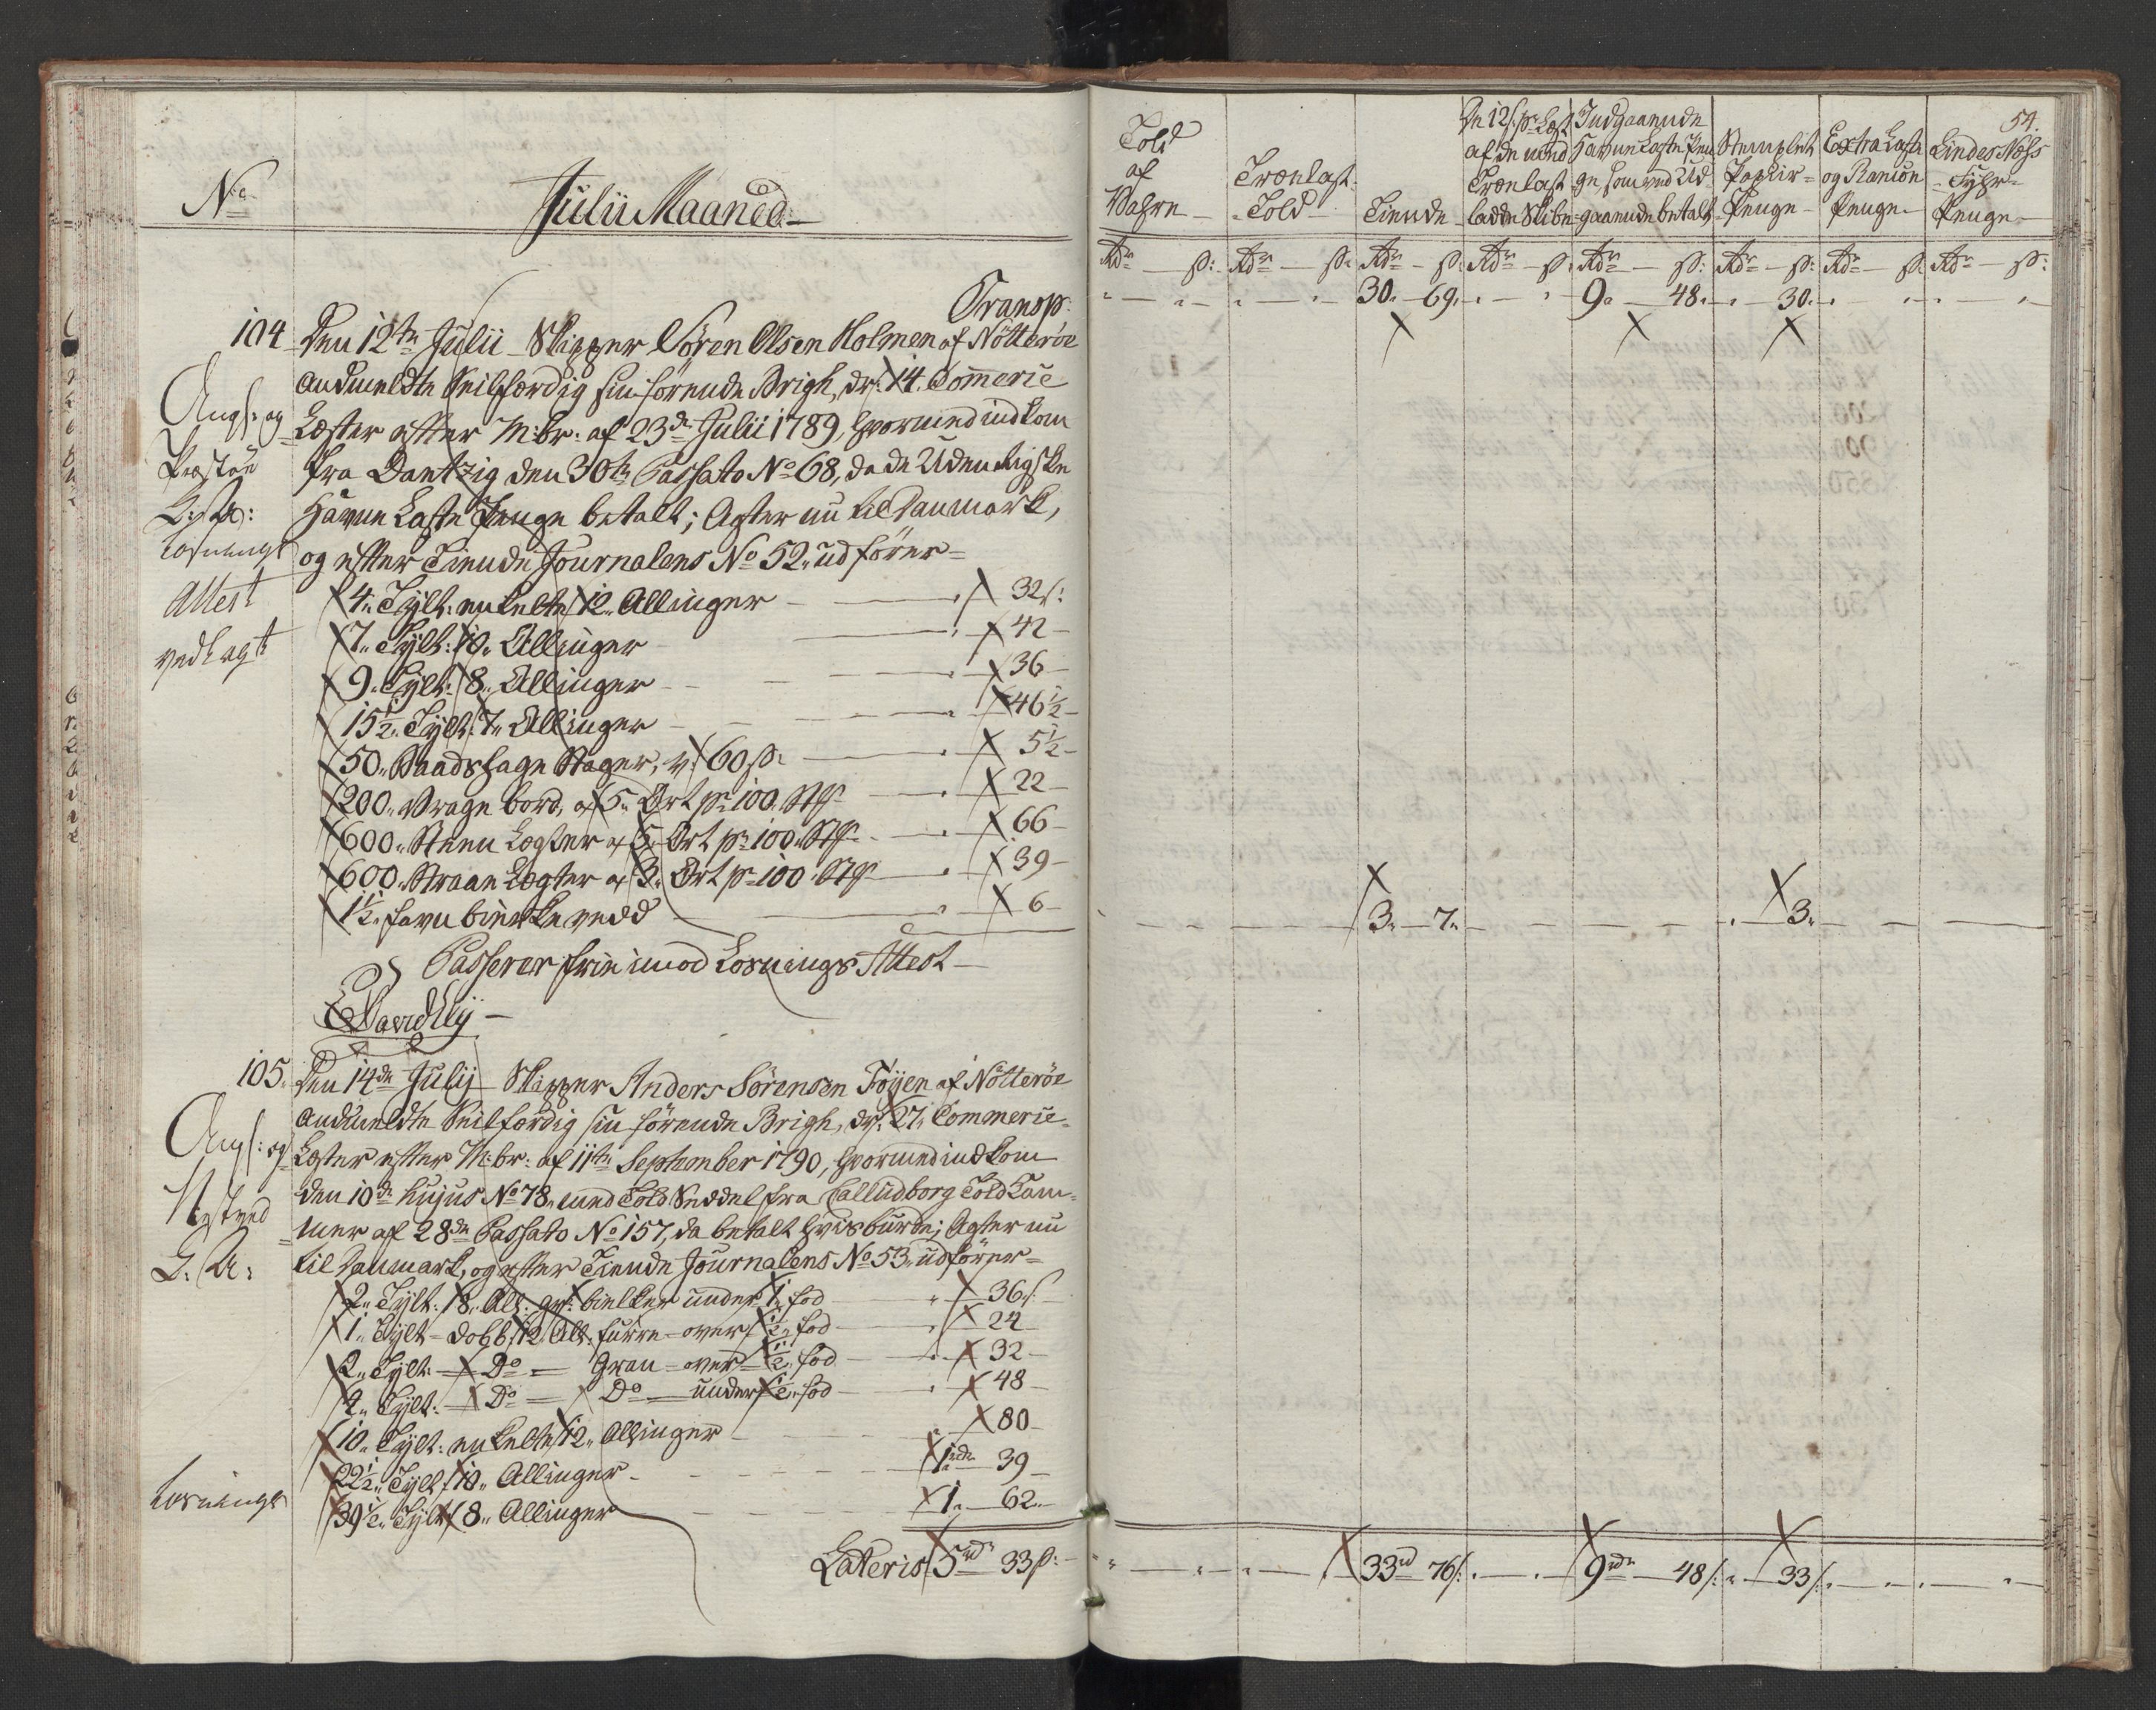 No
Julii Maaned
Transp:
104 Den 12te Julii Skipper Sören Olsen Holmen af Nötteröe
andmeldte Seilfærdig sin förende Brigh, dr: 14. Commerce
Læster efter M:br: af 23de Julii 1789, hvormed indkom
fra Dantzig den 30te Passato No 68, da de Udenrigske
Havne Laste Penge betalt; Agter nu til Danmark,
og efter Tiende Journalens No 52. udförer=
Angf: og
Præstöe
Losnings
Attest
vedlagt
4. Tylt: enkelte 12. Allinger 32 s:
7. Tylt: 10. Allinger 42
9. Tylt: 8. Allinger 36
15 1/2. Tylt: 7. Allinger 46 1/2
50. Baadshage Stager, v: 60 s: 5 1/2
200. Vrage bord, a 5. Ort pr 100. Stk 22
600. Steen Lægter a 5. Ort pr 100. Stk 66
600. Straae Lægter a 3. Ort pr 100. Stk 39
1 1/2. favn birke vedd 6
Passerer frie imod Losnings Attest
105. Den 14de Julij Skipper Anders Sörensen Föyen af Nötteröe
andmeldte Seilfærdig sin förende Brigh, dr: 27. Commerce-
Læster efter M:br: af 11te September 1790, hvormed indkom
den 10de hujus No 78. med Told Seddel fra Callundborg Told Kam-
mer af 28de Passato No 157, da betalt hvis burde; Agter nu
til Danmark, og efter Tiende Journalens No 53. udförer=
Angf: og
Nestved
2. Tylt: 8. All: gr: bielker under 1. fod 36 s
1. Tylt- dobb: 12 All: furre- over 1/2. fod 24
2. Tylt: Do = Gran- over 1/2. fod 32
4. Tylt: Do = Do under 1/2. fod 48
10. Tylt: enkelte 12. Allinger 80
22 1/2. Tylt 10. Allinger 1rdr 39
39 1/2. Tylt 8. Allinger 1. 62.
Losnings
Lateris 5rdr 33 s:
54.
Told
af
Vahre
Trælast-
Told
Tiende
De 12 s: pr Læst
af de med
Trælast
ladde Skibe
Indgaaende
Havne Laste Pen-
ge, som ved Ud-
gaaende betalt
Stemplet
Papiir-
Penge
Extra Laste
og Rancion
Penge
Lindes Næss
Fyhr=
Penge
Rdr s: Rdr s: Rdr s: Rdr s: Rdr s: Rdr s: Rdr s: Rdr s:
30. 69. 9. 48. 30.
3. 7. 3.
33rd 76 s: 9rdr 48 s: 33 s.